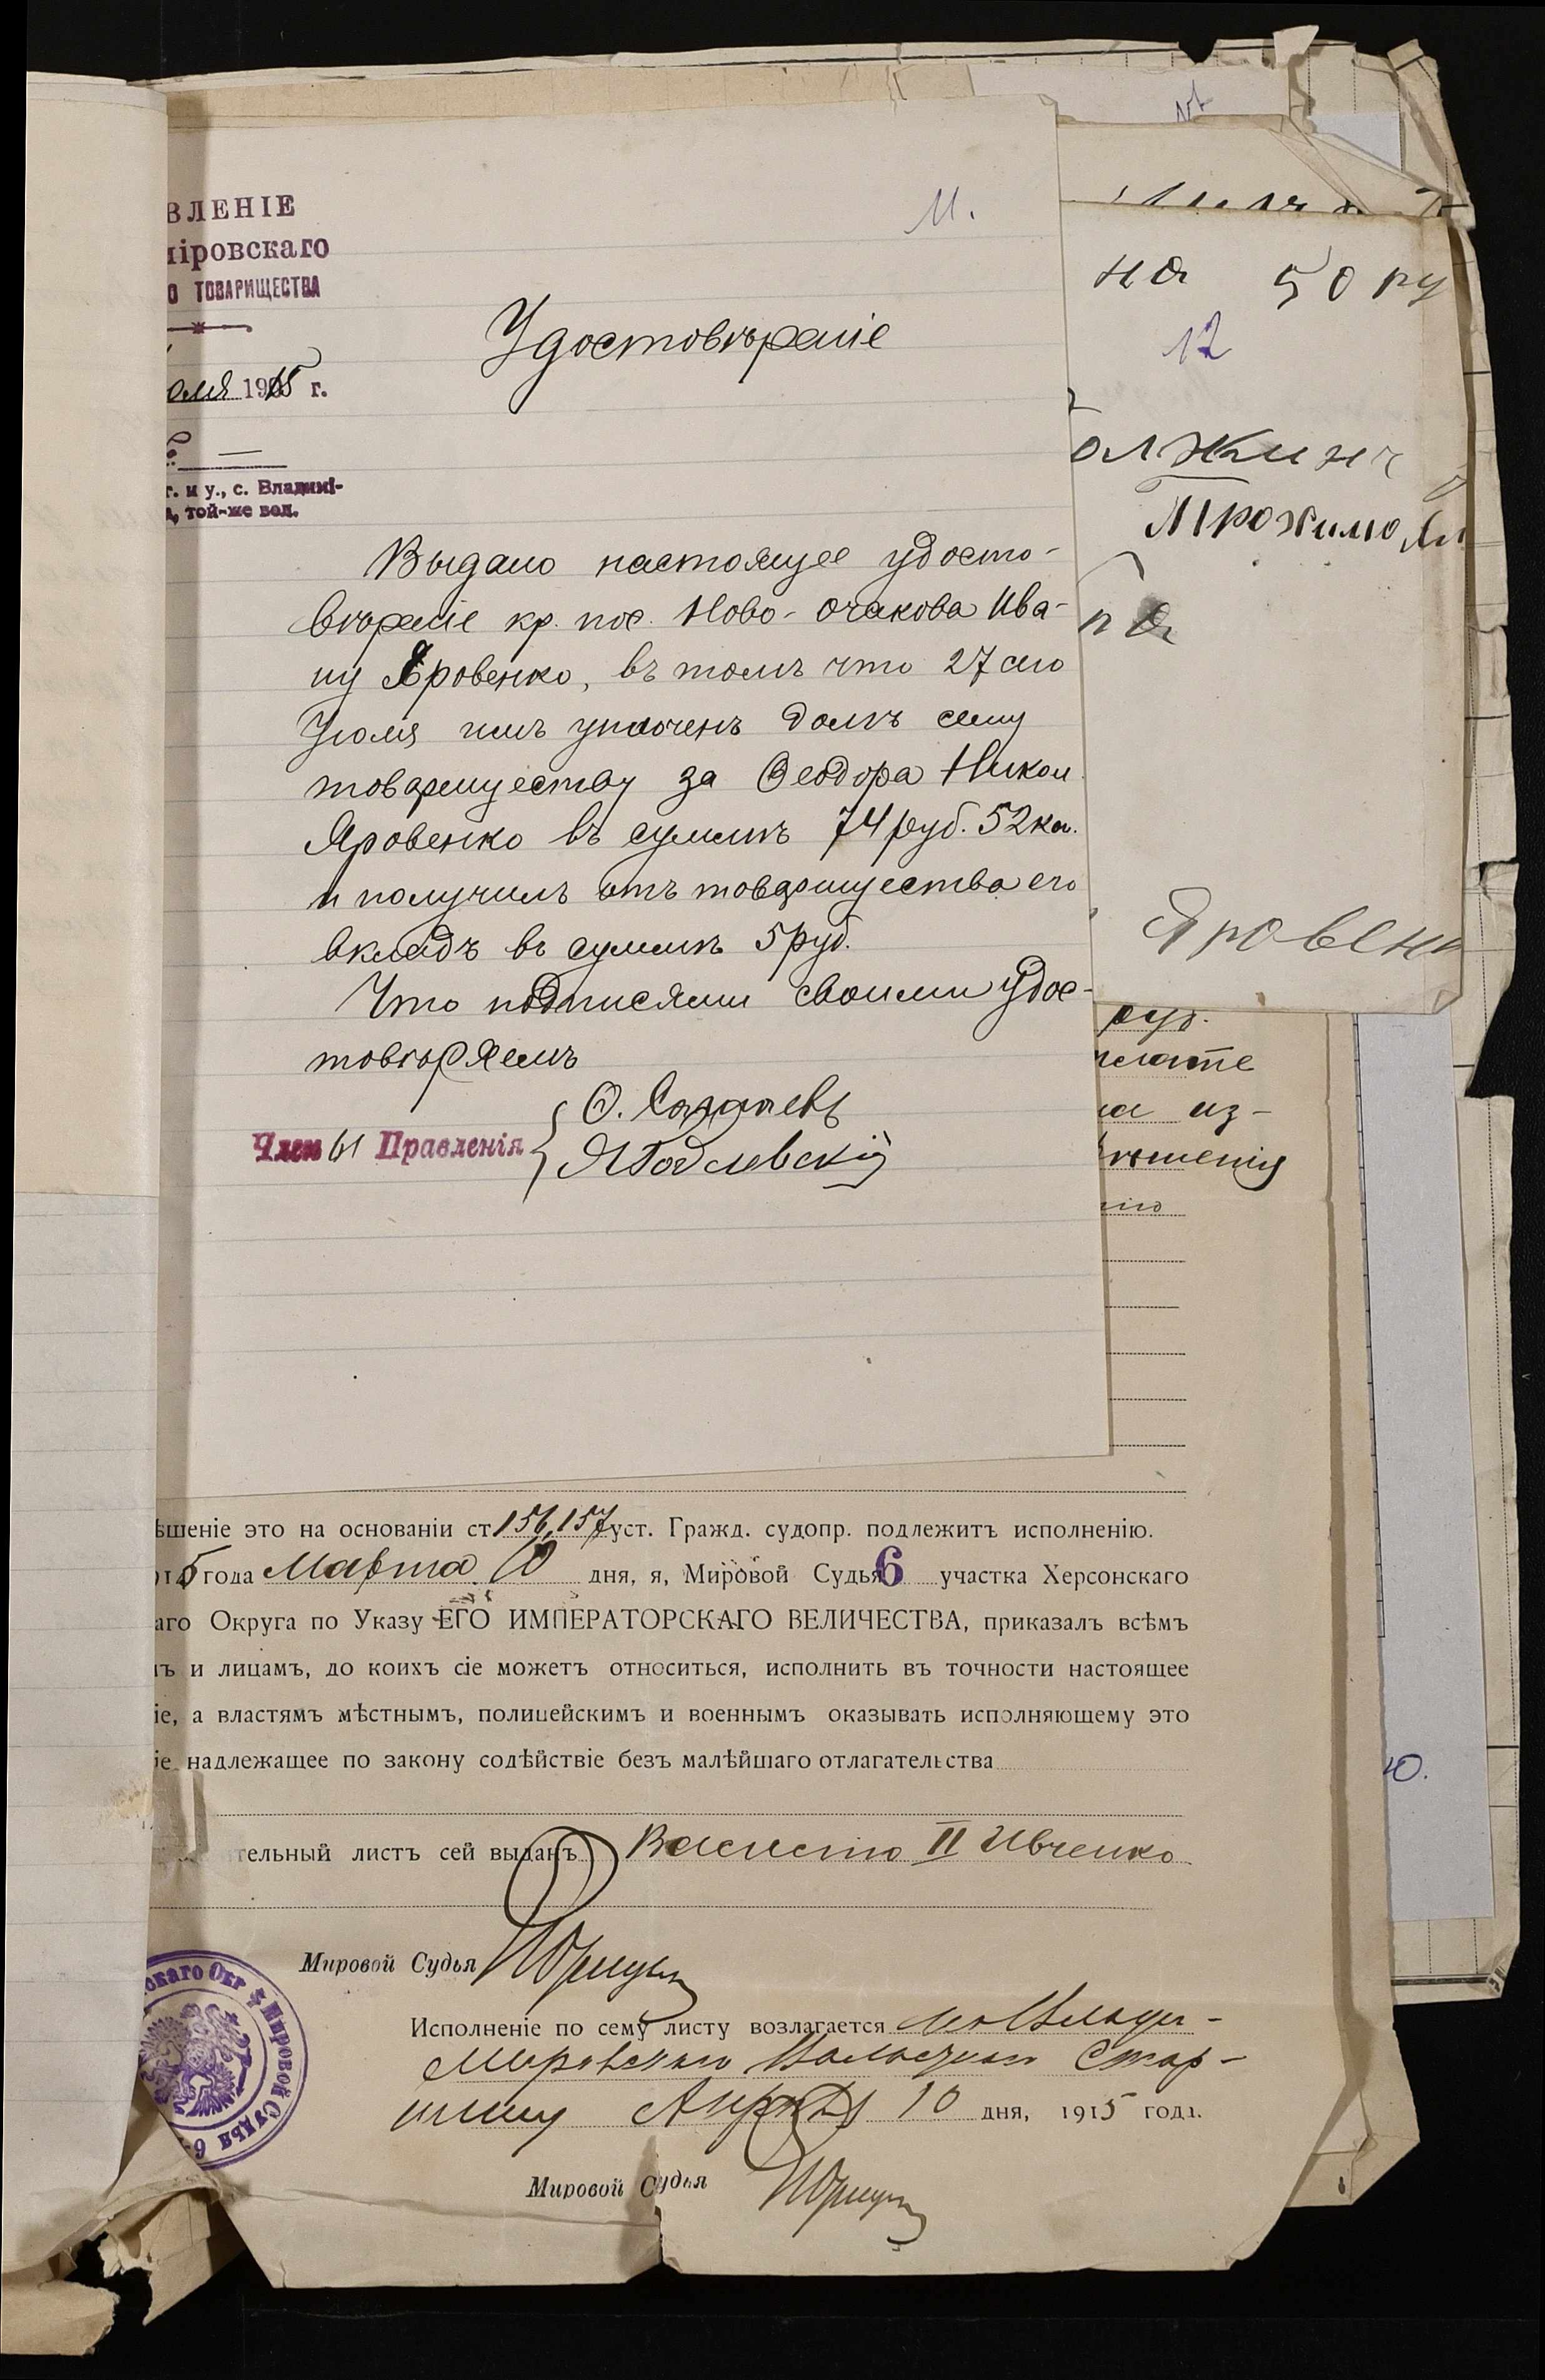 11.
ВЛЕНІЕ
міровскаго
О ТОВАРИЩЕСТВА
оля 1915 г.
г. и у., с. Владимі-
той-же вол.
Удостовѣреніе
Выдано настоящее удосто-
вѣреніе кр. пос. Ново-Очакова Ива-
ну Яровенко, въ томъ что 27 сего
Іюля имъ уплоченъ долгъ сему
товариществу за Ѳеодора Никол.
Яровенко въ суммѣ 74 руб. 52 ко.
и получилъ отъ товарищества его
вкладъ въ суммѣ 5 руб.
Что подписями своими удос-
товѣряемъ
Члены Правленія
на 50 ру
12
олжинъ
Яровенк
руб.
на из-
ѣшенія
ѣшеніе это на основаніи ст 156, 157 уст. Гражд. судопр. подлежитъ исполненію.
915 года Марта 10 дня, я, Мировой Судья 6 участка Херсонскаго
аго Округа по Указу ЕГО ИМПЕРАТОРСКАГО ВЕЛИЧЕСТВА, приказалъ всѣмъ
ъ и лицамъ, до коихъ сіе можетъ относиться, исполнить въ точности настоящее
іе, а властямъ мѣстнымъ, полицейскимъ и военнымъ оказывать исполняющему это
іе надлежащее по закону содѣйствіе безъ малѣйшаго отлагательства
тельный листъ сей выданъ Василію II Ивченко
Мировой Судья
Исполненіе по сему листу возлагается на Влади-
мировскаго Волостного Стар-
шину Апрѣля 10 дня, 1915 года.
Мировой Судья
скаго Окр. Мировой Судья 6